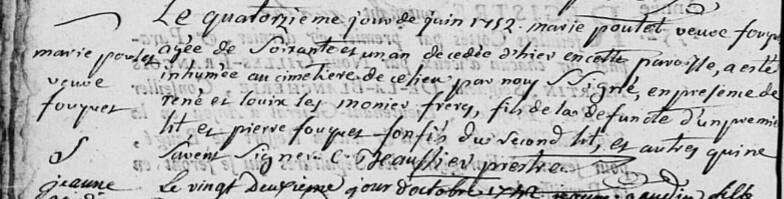 Le quatorzieme jour de juin 1752. marie poutet veuve fouquet
marie poutet
veuve
fouquet
agée de Soixante et un an decedée d'hier en cette paroisse, a esté
inhumée au cimetiere de ce lieu par nous Ssigné, en presence de
rené et louix les monier freres, fils de la defuncte d'un premier
lit, et pierre fouquet son fils du second lit, et autres qui ne
Savent Signer C. prestre
S
jeanne
Le vingt deuxieme jour d'octobre 1752